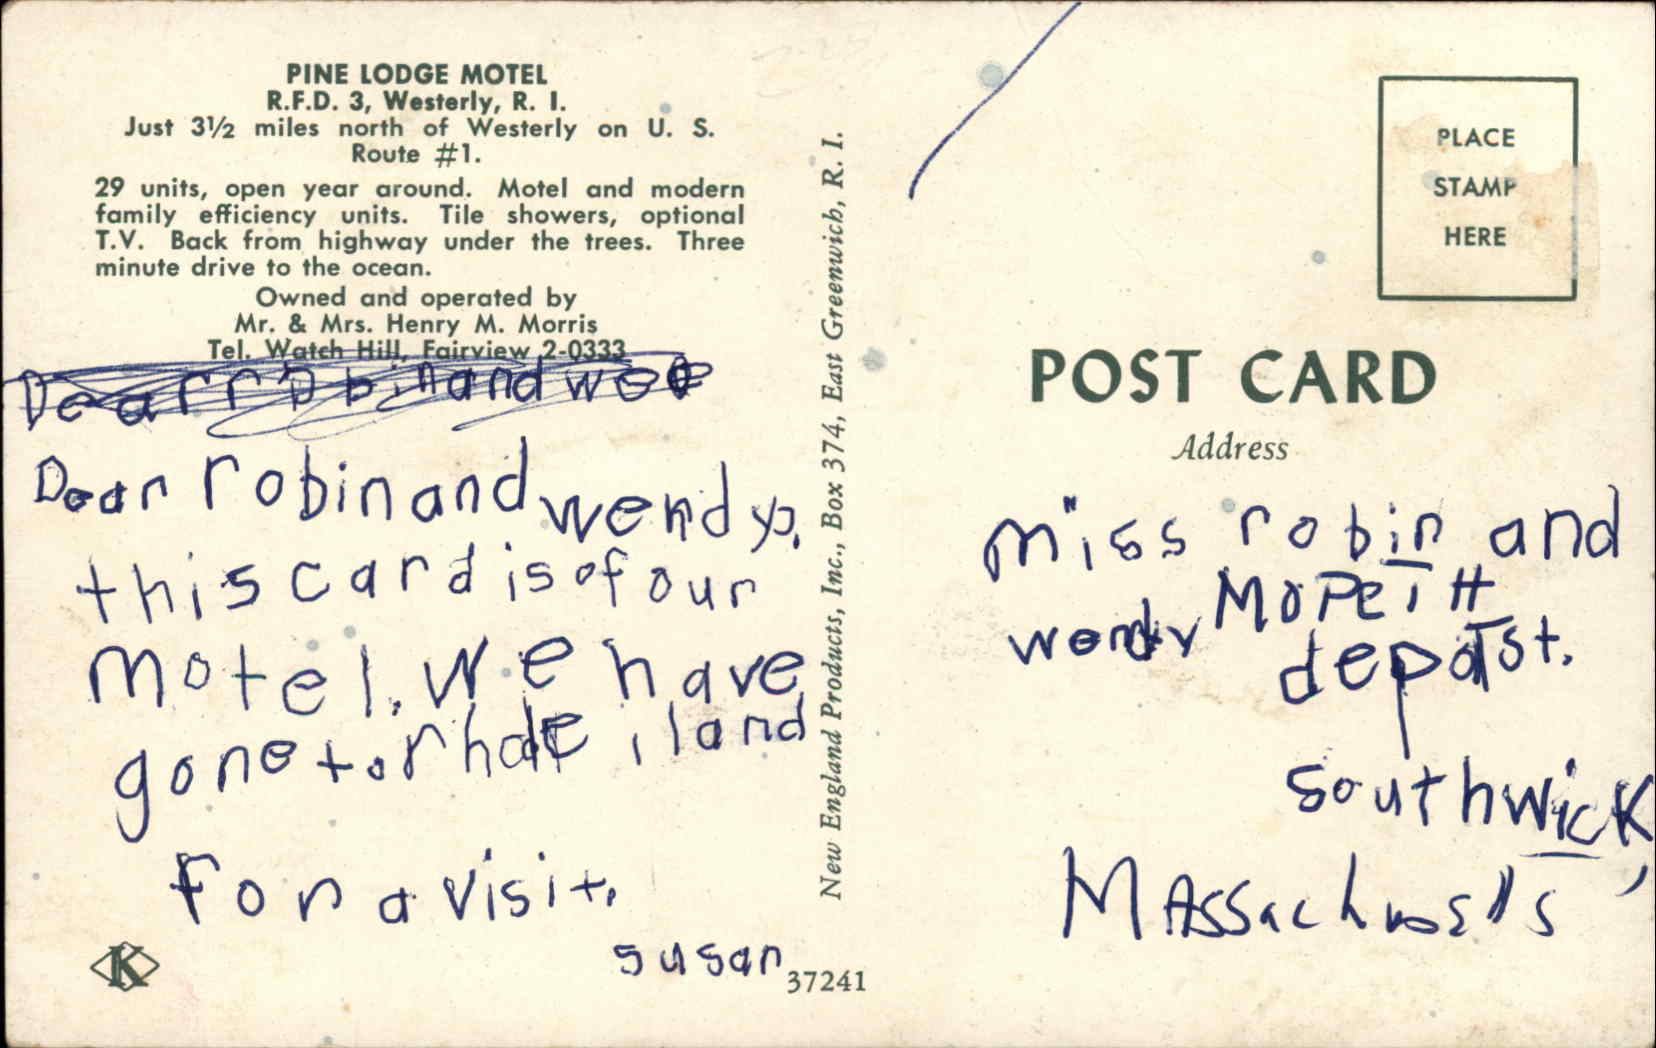 PINE LODGE MOTEL
R.F.D. 3, Westerly, R. I.
Just 3½ miles north of Westerly on U. S.
Route #1.
29 units, open year around. Motel and modern
family efficiency units. Tile showers, optional
T.V. Back from highway under the trees. Three
minute drive to the ocean.
Owned and operated by
Mr. & Mrs. Henry M. Morris
Tel. Watch Hill, Fairview 2-0333
Dear robin and we
Dear robin and wendy,
this card is of our
motel. We have
gone to rhode iland
for a visit.
susan
37241
K
New England Products, Inc., Box 374, East Greenwich, R. I.
PLACE
STAMP
HERE
POST CARD
Address
miss robin and
wendy MOPETH
depot st.
southwick,
MAssachusetts